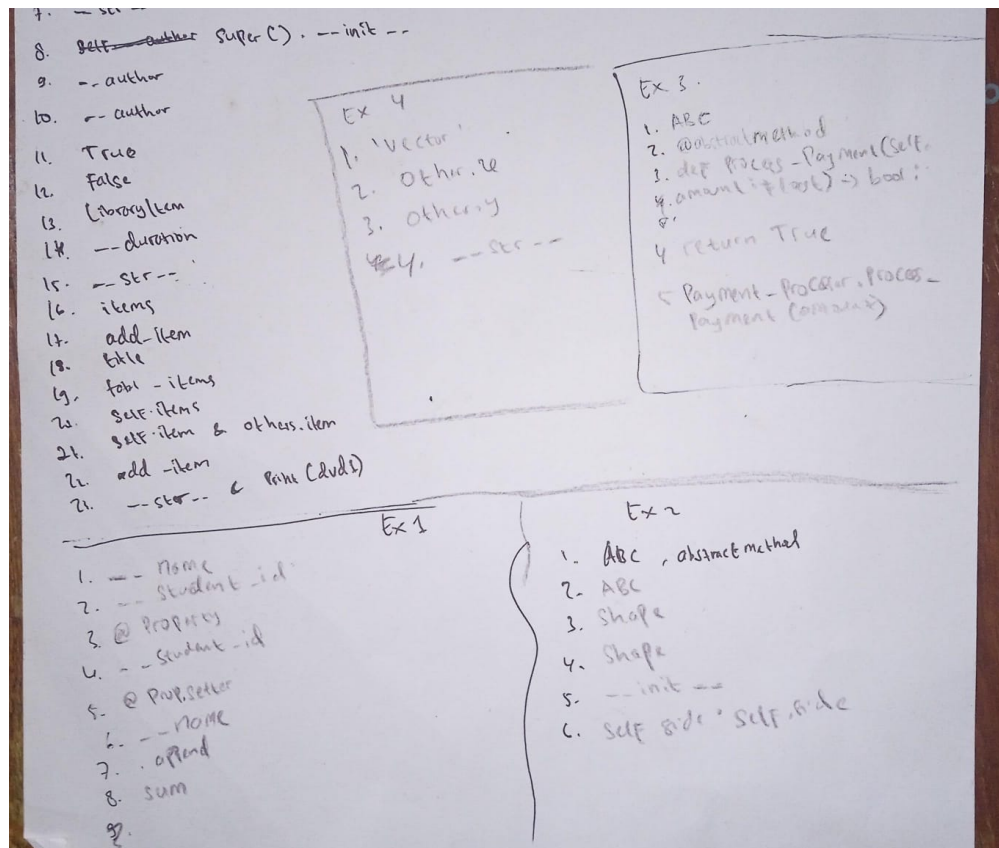 7. __str__
8. super() . __init__
9. __author
10. __author
11. True
12. False
13. LibraryItem
14. __duration
15. __str__
16. items
17. add_item
18. title
19. _items
20. self.items
21. self.item & others.item
22. add_item
21. __str__ Print (dvd1)
Ex 4
1. 'Vector'
2. Other.x
3. other.y
4. __str__
Ex 3.
1. ABC
2. @abstractmethod
3. def Process_Payment(self,
4. amount: float) -> bool:
4 return True
5 Payment_Processor.Process_
Payment (amount)
Ex 1
1. __name
2. __Student_id
3. @ Property
4. __Student_id
5. @ Prop.setter
6. __name
7. .append
8. sum
9.
Ex 2
1. ABC , abstractmethod
2. ABC
3. Shape
4. Shape
5. __init__
6. self side * self.side